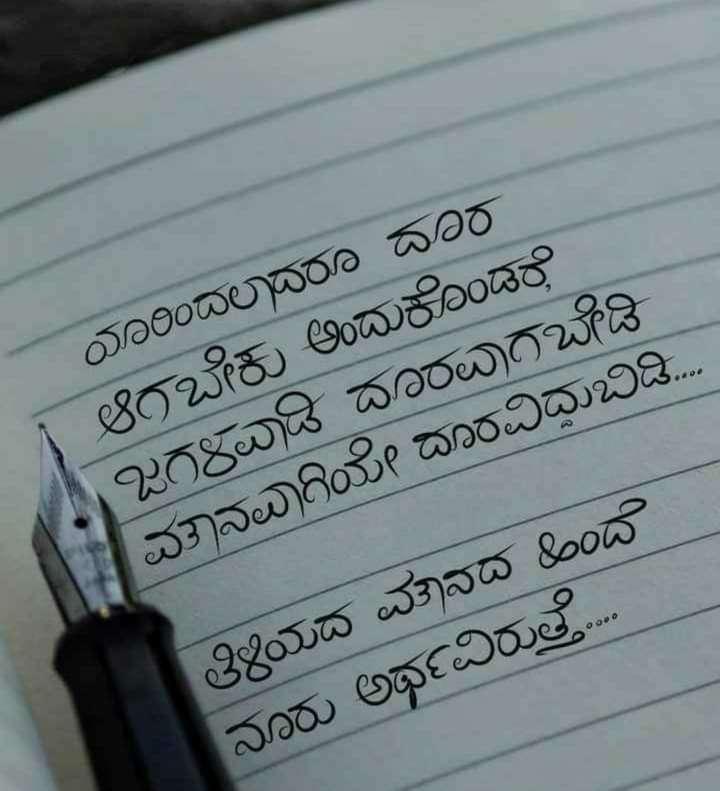 ಯಾರಿಂದಲಾದರೂ ದೂರ
ಆಗಬೇಕು ಅಂದುಕೊಂಡರೆ,
ಜಗಳವಾಡಿ ದೂರವಾಗಬೇಡಿ
ಮೌನವಾಗಿಯೇ ದೂರವಿದ್ದುಬಿಡಿ....
ತಿಳಿಯದ ಮೌನದ ಹಿಂದೆ
ನೂರು ಅರ್ಥವಿರುತ್ತೆ....